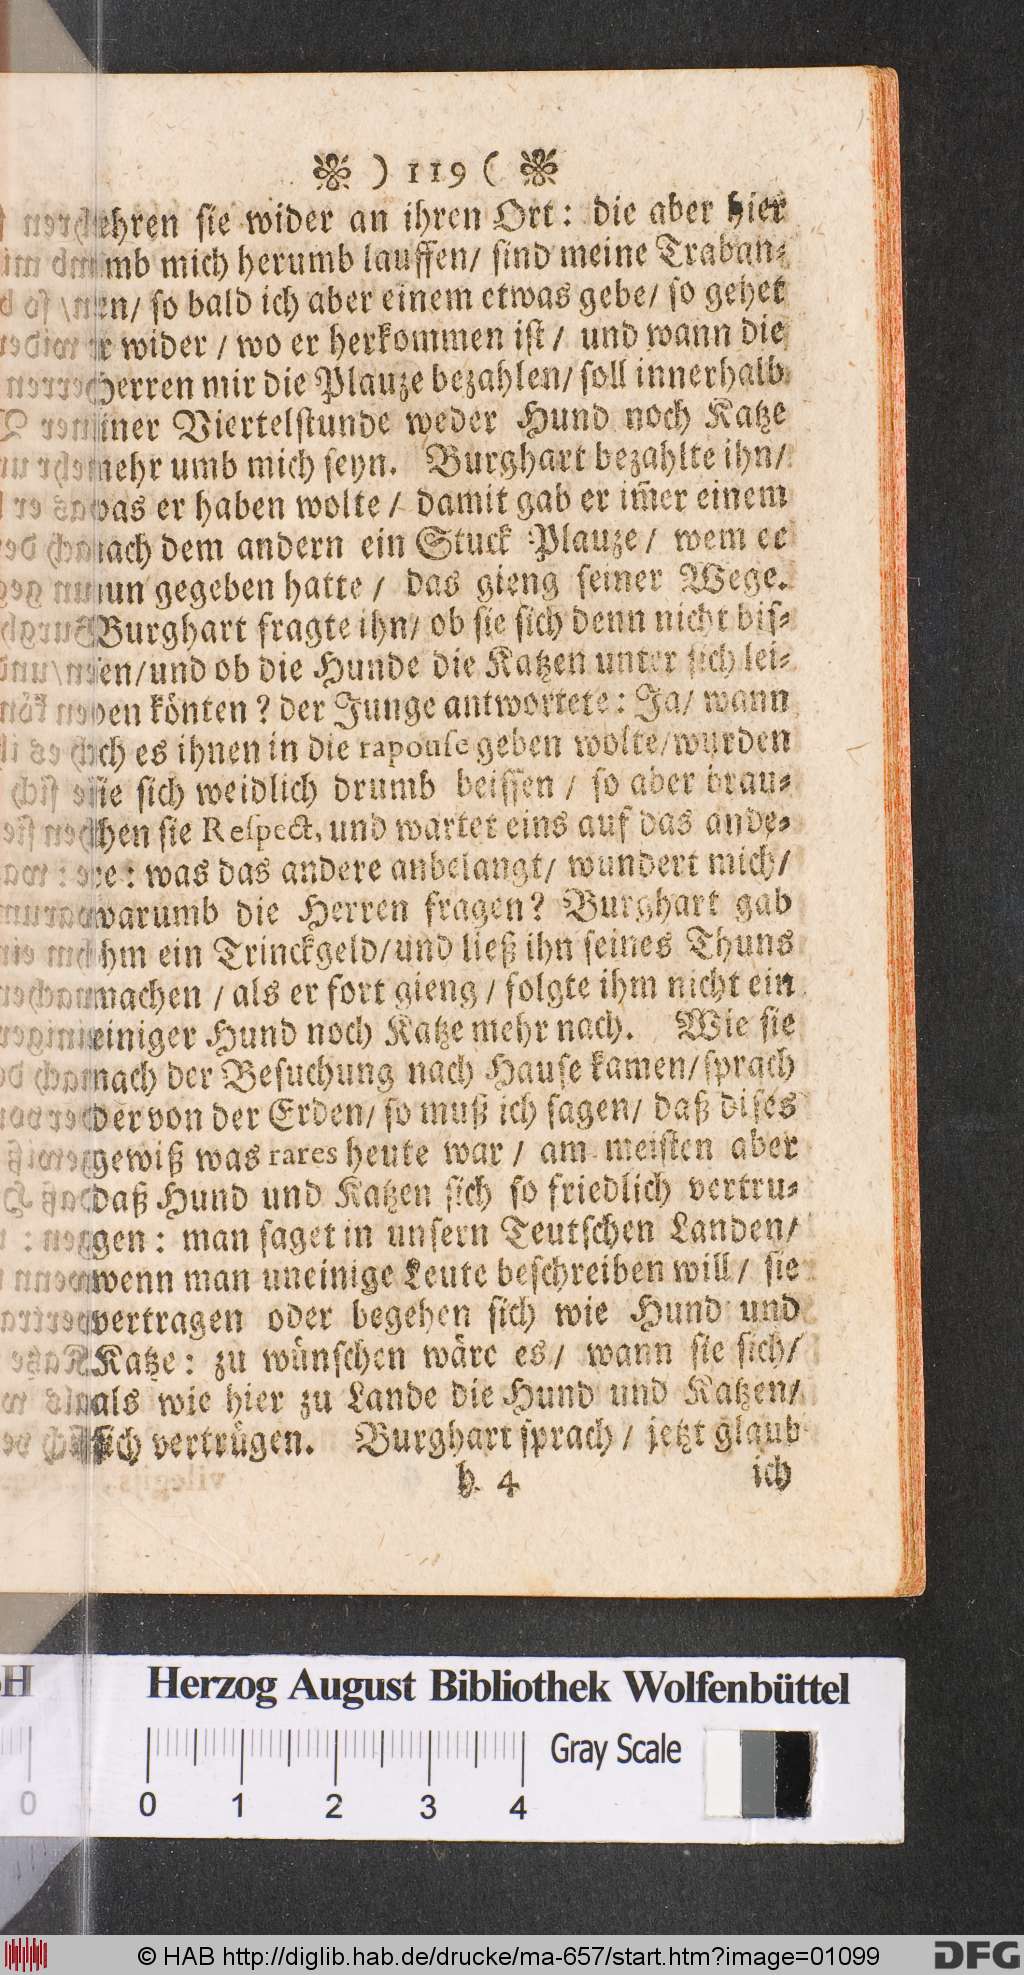 ) 119 (
kehren sie wider an ihren Ort: die aber hier
umb mich herumb lauffen/ sind meine Traban⸗
ten/ so bald ich aber einem etwas gebe/ so gehet
er wider / wo er herkommen ist / und wann die
Herren mir die Plauze bezahlen/ soll innerhalb
einer Viertelstunde weder Hund noch Katze
mehr umb mich seyn. Burghart bezahlte ihn/
was er haben wolte / damit gab er im̃er einem
nach dem andern ein Stuck Plauze / wem er
nun gegeben hatte / das gieng seiner Wege.
Burghart fragte ihn/ ob sie sich denn nicht bis⸗
sen/und ob die Hunde die Katzen unter sich lei⸗
den könten? der Junge antwortete: Ja/ wann
ich es ihnen in die rapouse geben wolte/wurden
sie sich weidlich drumb beissen / so aber brau⸗
chen sie Respect, und wartet eins auf das ande⸗
re: was das andere anbelangt/ wundert mich/
warumb die Herren fragen? Burghart gab
ihm ein Trinckgeld/und ließ ihn seines Thuns
machen / als er fort gieng / folgte ihm nicht ein
einiger Hund noch Katze mehr nach. Wie sie
nach der Besuchung nach Hause kamen/sprach
der von der Erden/ so muß ich sagen/ daß dises
gewiß was rares heute war / am meisten aber
daß Hund und Katzen sich so friedlich vertru⸗
gen: man saget in unsern Teutschen Landen/
wenn man uneinige Leute beschreiben will/ sie
vertragen oder begehen sich wie Hund und
Katze: zu wünschen wäre es/ wann sie sich/
als wie hier zu Lande die Hund und Katzen/
sich vertrügen. Burghart sprach / jetzt glaub
h 4 ich
Herzog August Bibliothek Wolfenbüttel
Gray Scale
0 0 1 2 3 4
© HAB http://diglib.hab.de/drucke/ma-657/start.htm?image=01099
DFG